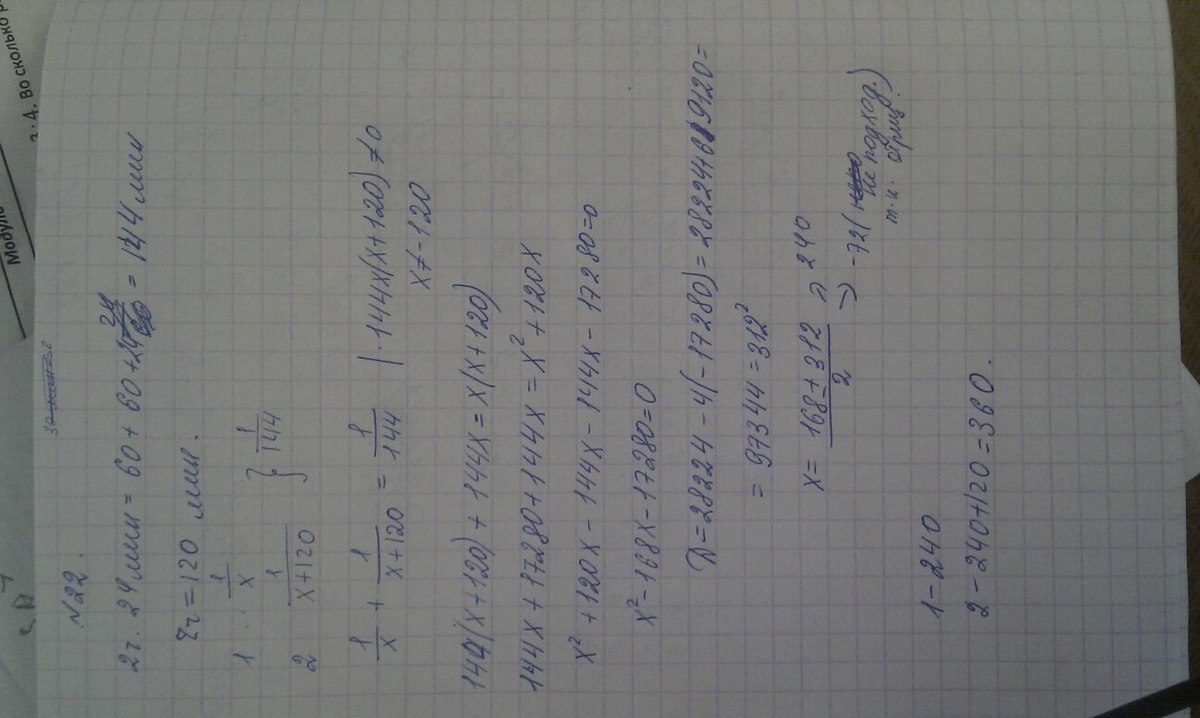 №22.
2ч. 24 мин = 60 + 60 + 24 = 144 мин
2ч = 120 мин.
1 1/x
2 1/(x+120) } 1/144
1/x + 1/(x+120) = 1/144 | · 144x(x+120) ≠ 0
x ≠ -120
144(x+120) + 144x = x(x+120)
144x + 17280 + 144x = x² + 120x
x² + 120x - 144x - 144x - 17280 = 0
x² - 168x - 17280 = 0
D = 28224 - 4(-17280) = 28224 + 69120 =
= 97344 = 312²
x = (168 ± 312)/2 240
-72 (не подход.)
т.к. отриц.
1 - 240
2 - 240 + 120 = 360.
Модуль
4. Во сколько